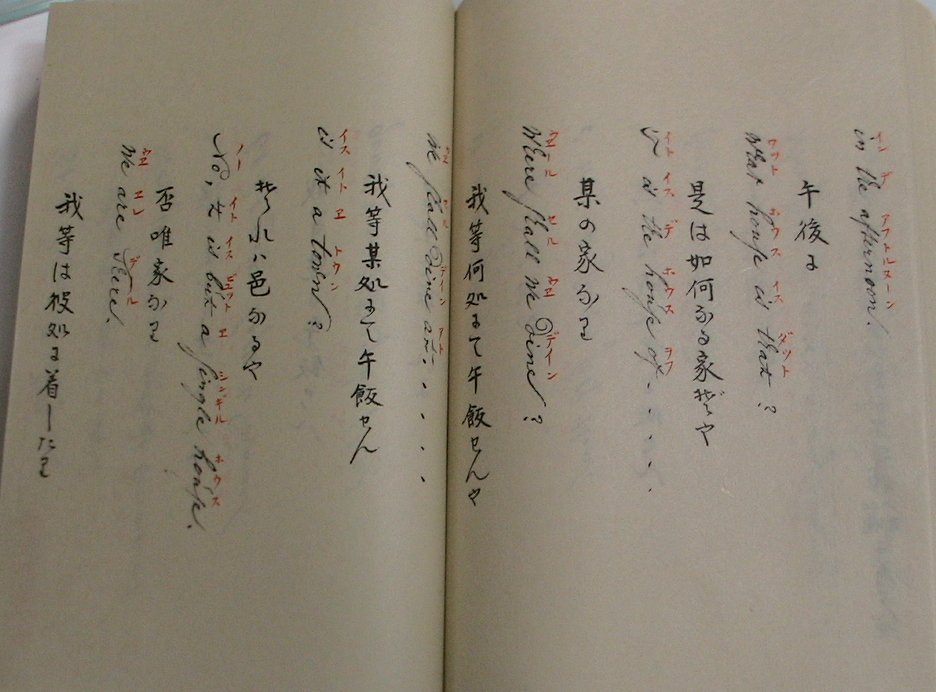 イン デ アフトルヌーン
in the afternoon.
午後に
ワット ホウス イス ダット
What houſe is that?
是は如何なる家ぞや
イト イス デ ホウス ヲフ
it is the houſe of. . . .
某の家なり
ウエール セル ウエ デイン
Where ſhall we dine?
我等何処にて午飯せんや
ウエ デイン アト
we dine at. . . .
我等某処にて午飯せん
イス イト エ トウン
is it a town?
それハ邑なるや
ノー イト イス ビュット エ シンギル ホウス
No, it is but a ſingle houſe.
否唯家なり
ウエ エレ デール
We are there.
我等は彼処に着したり